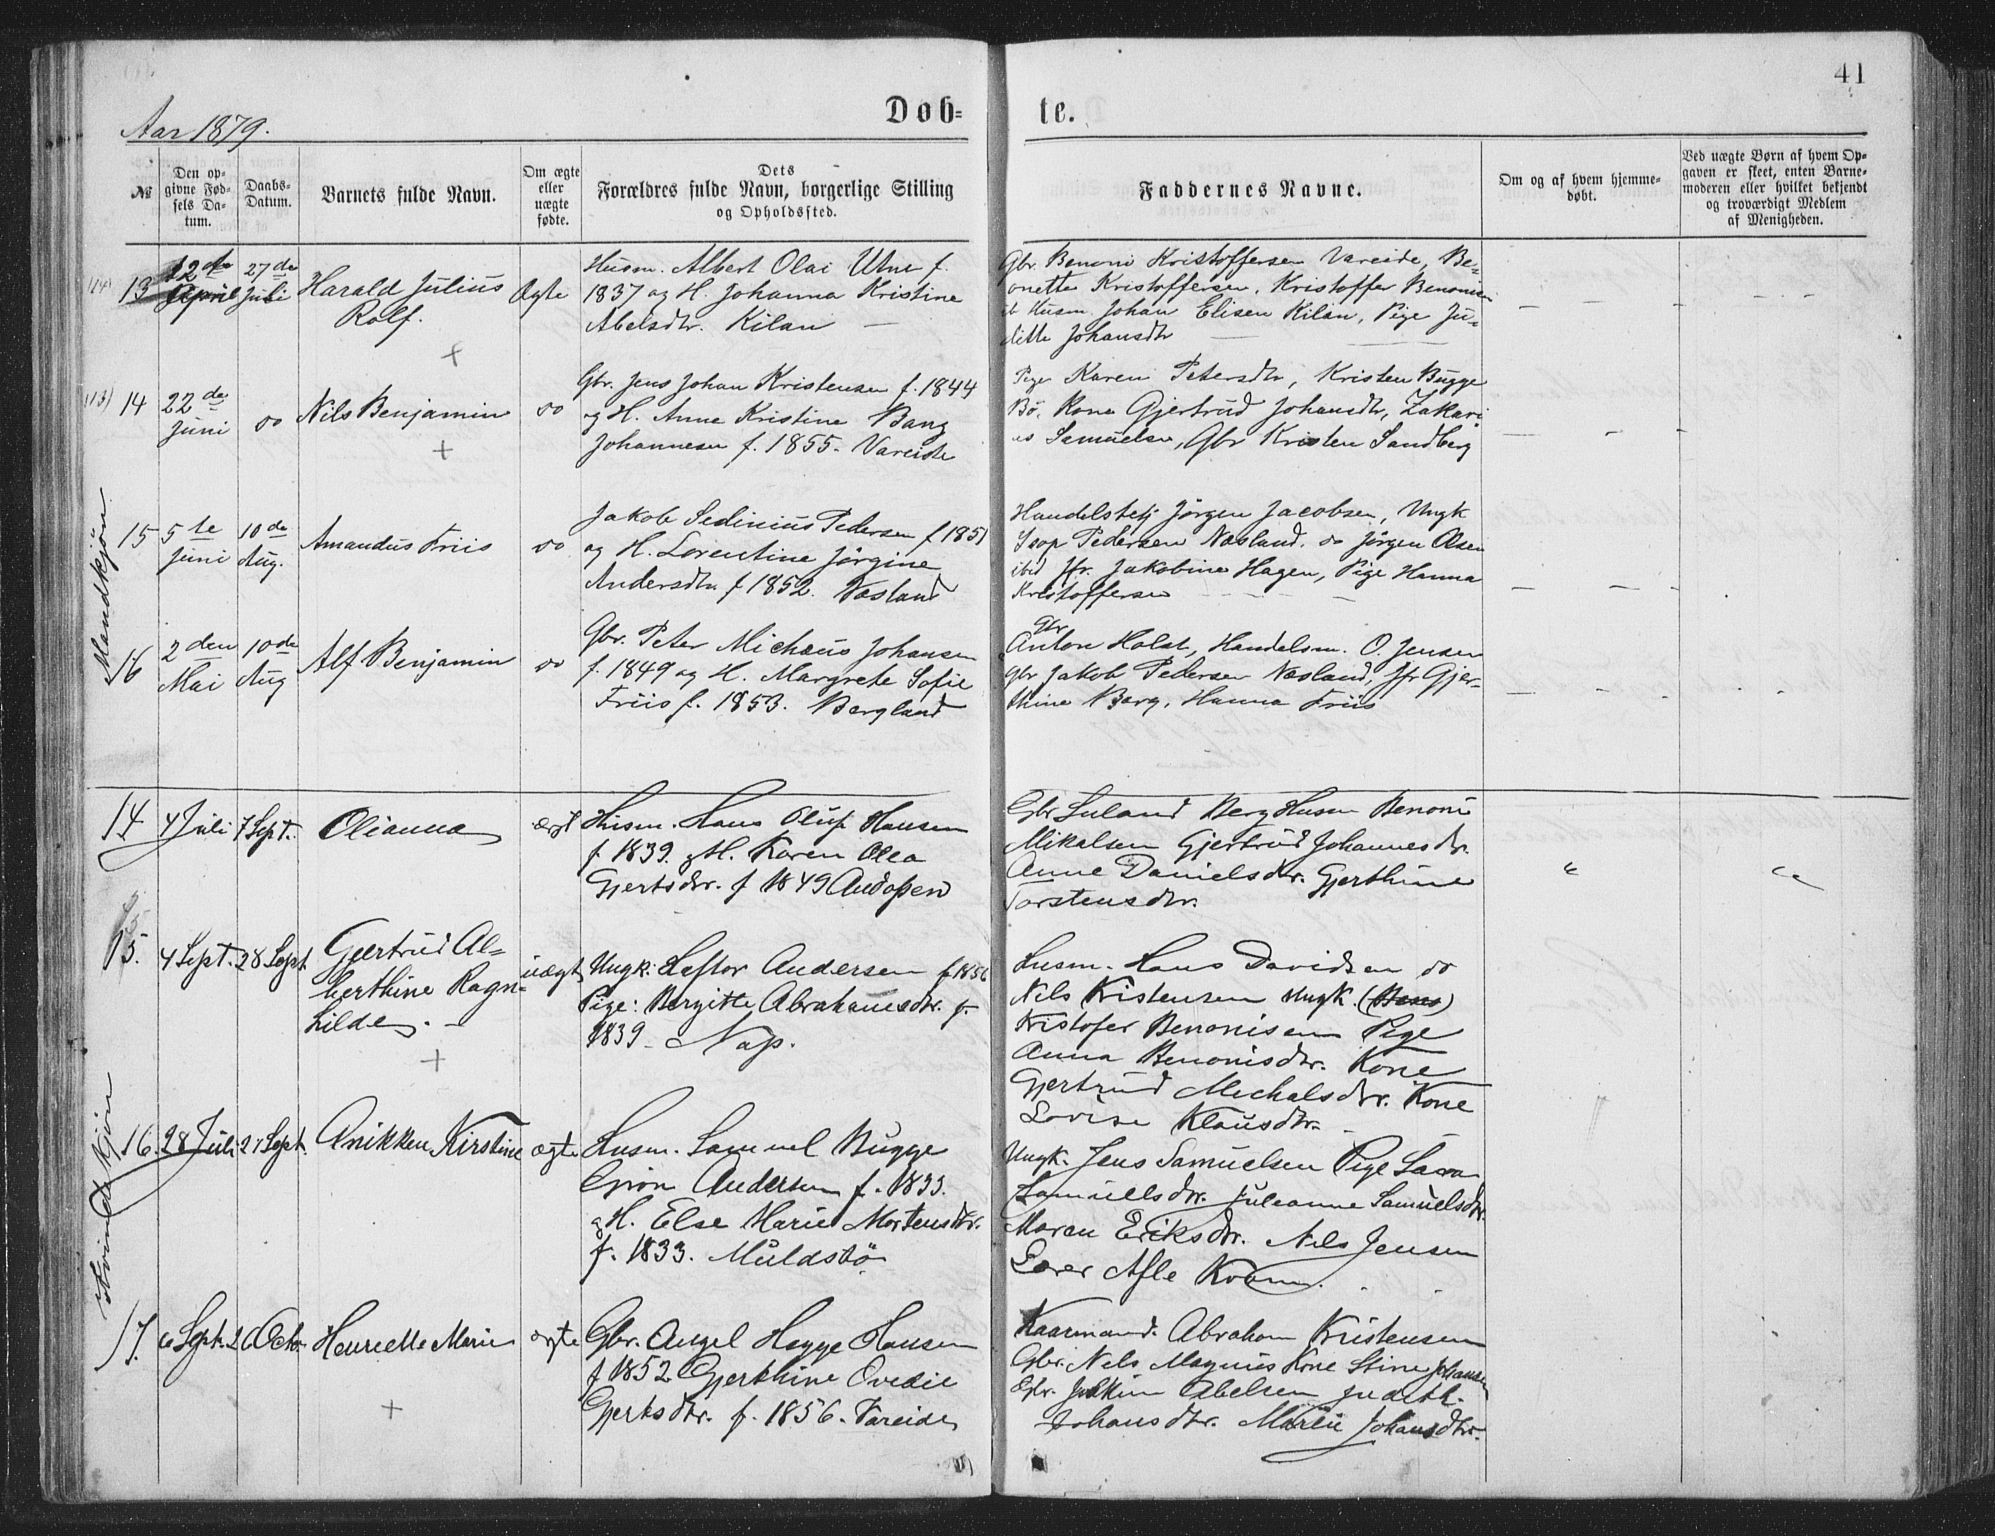 41
Døb=
te.
Aar 1879.
№
Den op-
givne Fød-
sels Da-
tum.
Daabs-
Datum.
Barnets fulde Navn.
Om ægte
eller
uægte
fødte.
Dets
Forældres fulde Navn, borgerlige Stilling
og Opholdssted.
Faddernes Navne.
Om og af hvem hjemme-
døbt.
Ved uægte Børn af hvem Op-
gaven er skeet, enten Barne-
moderen eller hvilket bekjendt
og troværdigt Medlem
af Menigheden.
Mandkjøn
(14) 13
12te
April
27de
Juli
Harald Julius
Rolf.
Ægte
Husm. Albert Olai Utne f.
1837 og H. Johanna Kristine
Abelsdtr. Kilan
Gbr. Benoni Kristoffersen Vareide, Be-
onette Kristoffersen, Kristoffer Benonisen
ib Husm. Johan Elisen Kilan, Pige Ju-
ditte Johansdtr
(13) 14
22de
Juni
do
Nils Benjamin
do
Gbr. Jens Johan Kristensen f. 1844
og H. Anne Kristine Bang
Johannesen f. 1855. Vareide
Pige Karen Petersdtr, Kristen Bugge
Bø. Kone Gjertrud Johansdtr, Zakari
as Samuelsen, Gbr Kristen Sandberg
15
5te
Juni
10de
Aug.
Amandus Friis
do
Jakob Sedinius Pedersen f 1851
og H. Lorentine Jørgine
Andersdtr f 1852. Næsland
Handelsbetj Jørgen Jacobsen, Ungk
Seop Pedersen Næsland. do Jørgen Olsen
ibid Jfr. Jakobine Hagen, Pige Hanna
Kristoffersen
16
2den
Mai
10de
Aug
Alf Benjamin
do
Gbr. Peter Michæus Johansen
f. 1849 og H. Margrete Sofie
Friis f. 1853. Bergland
Gbr
Anton Holst, Handelsm. O. Jensen
gbr Jakob Pedersen Næsland, Jfr Gjer-
thine Berg, Hanna Friis
Kvindekjøn
14
4 Juli
7 Sept.
Olianna
ægt
Husm. Hans Oluf Hansen
f 1839. og H. Karen Olea
Gjertsdtr. f 1849 Andopen
Gbr Suland Berg Husm Benoni
Mikalsen Gjertrud Johannesdtr.
Anne Danielsdtr. Gjerthine
Torstensdtr.
15.
4 Sept.
28 Sept.
Gjertrud Al-
berthine Ragn-
hilde.
uægt
Ungk: Hestor Andersen f 1856
Pige: Bergitte Abrahamsdtr. f.
1839. Nap.
Husm. Hans Davidsen do
Nels Kristensen Ungk. (Hans)
Kristofer Benonisen Pige
Anna Benonisdtr. Kone
Gjertrud Michalsdtr. Kone
Lovise Klausdtr.
16.
28 Juli
21 Sept.
Anikken Kirstine
ægte
Husm. Samuel Bugge
Grøn Andersen f. 1833.
og H. Else Marie Mortensdtr.
f. 1833. Muldstø
Ungk. Jens Samuelsen Pige Sara
Samuelsdtr. Juleanne Samuelsdtr.
Maren Eriksdtr. Nels Jensen
17.
6 Sept.
26 Octo.
Henriette Marie
ægte
Gbr. Angel Hegge Hansen
f 1852. Gjerthine Ovedie
Gjertsdtr. f. 1856. Vareide
Kaarmand. Abraham Kristensen
Gbr. Nels Magnus Kone Stine Johansen
Gbr. Joakim Abelsen Judith
Johansdtr. Marie Johansdtr.